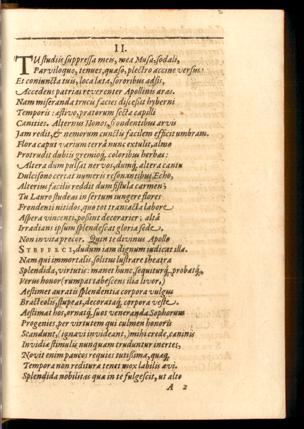 II.
TU studiis suppressa meis, mea Musa, sodali,
Parviloquo, tenues, quæso, plectro accine versus
Et coniuncta tuis, loca læta, sororibus adsis,
Accedens patrias reverenter Apollinis aras.
Nam miseranda trucis facies discessit hyberni
Temporis: æstivo, pratorum secta capilli
Canities. Alternus Honos, frondentibus arvi
Iam redit, & nemorum cunctu facilem efficit umbram.
Flora caput varium terrâ nunc extulit, almo
Protrudit dubiis gremioq́, coloribus herbas:
Altera dum pulsat nervos, dumq́, altera cantu
Dulcisono certat numeris resonantibus Echo,
Alterius facilis reddit dum fistula carmen;
Tu Lauro studeas insertum iungere flores
Frondenti nitidos, quo tot transacta labore
Aspera vincenti, possint decorarier; altâ
Irradians ipsum splendescat gloria sede.
Non invita precor. Quin te divinus Apollo
dudum iam dignum iudicat illa.
Nam qui immortali, solitus lustrare theatra
Splendida, virtuti: manet hunc, sequiturq́, probatq́,
Verus honor (rumpat tabescens ilia livor,)
Aestimet auratis splendentia corpora vulgus
Bracteolis, stupeat, decorataq́, corpora veste
Aestimat hos, ornatq́, suos veneranda Sophorum
Progenies per virtutem qui culmen honoris
Scandunt, (ignavi invideant,) mihi crede, caninis
Invidiæ stimulis nunquam truduntur inertes,
Novit enim paucos requies tutissima, quaq́,
Tempora non reditura tenet mox labilis ævi.
Splendida nobilitas qua in te fulgescit, ut alto
A 2